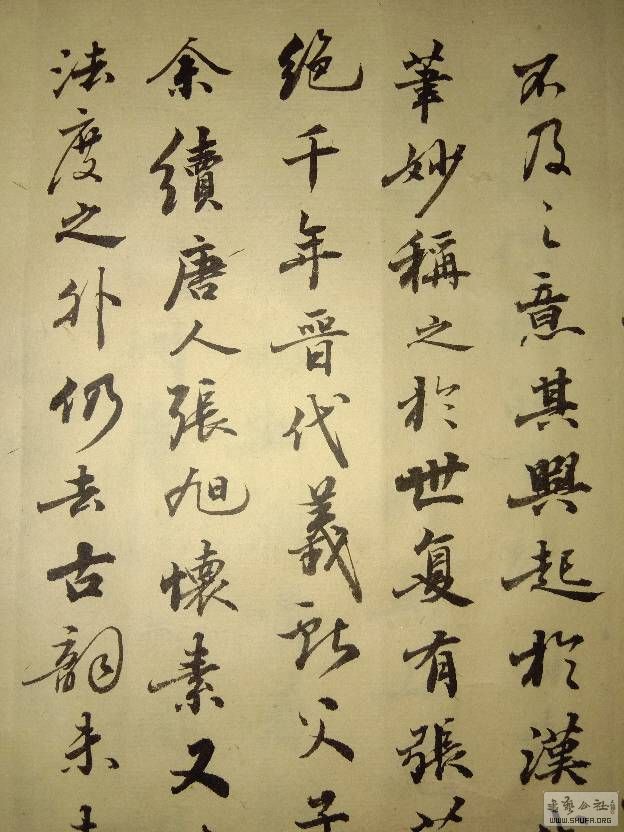 不及之意其興起於漢
筆妙稱之於世复有張
絕千年晉代羲獻父子
余續唐人張旭懷素又
法度之外仍去古韵未
WWW.SHUFA.ORG